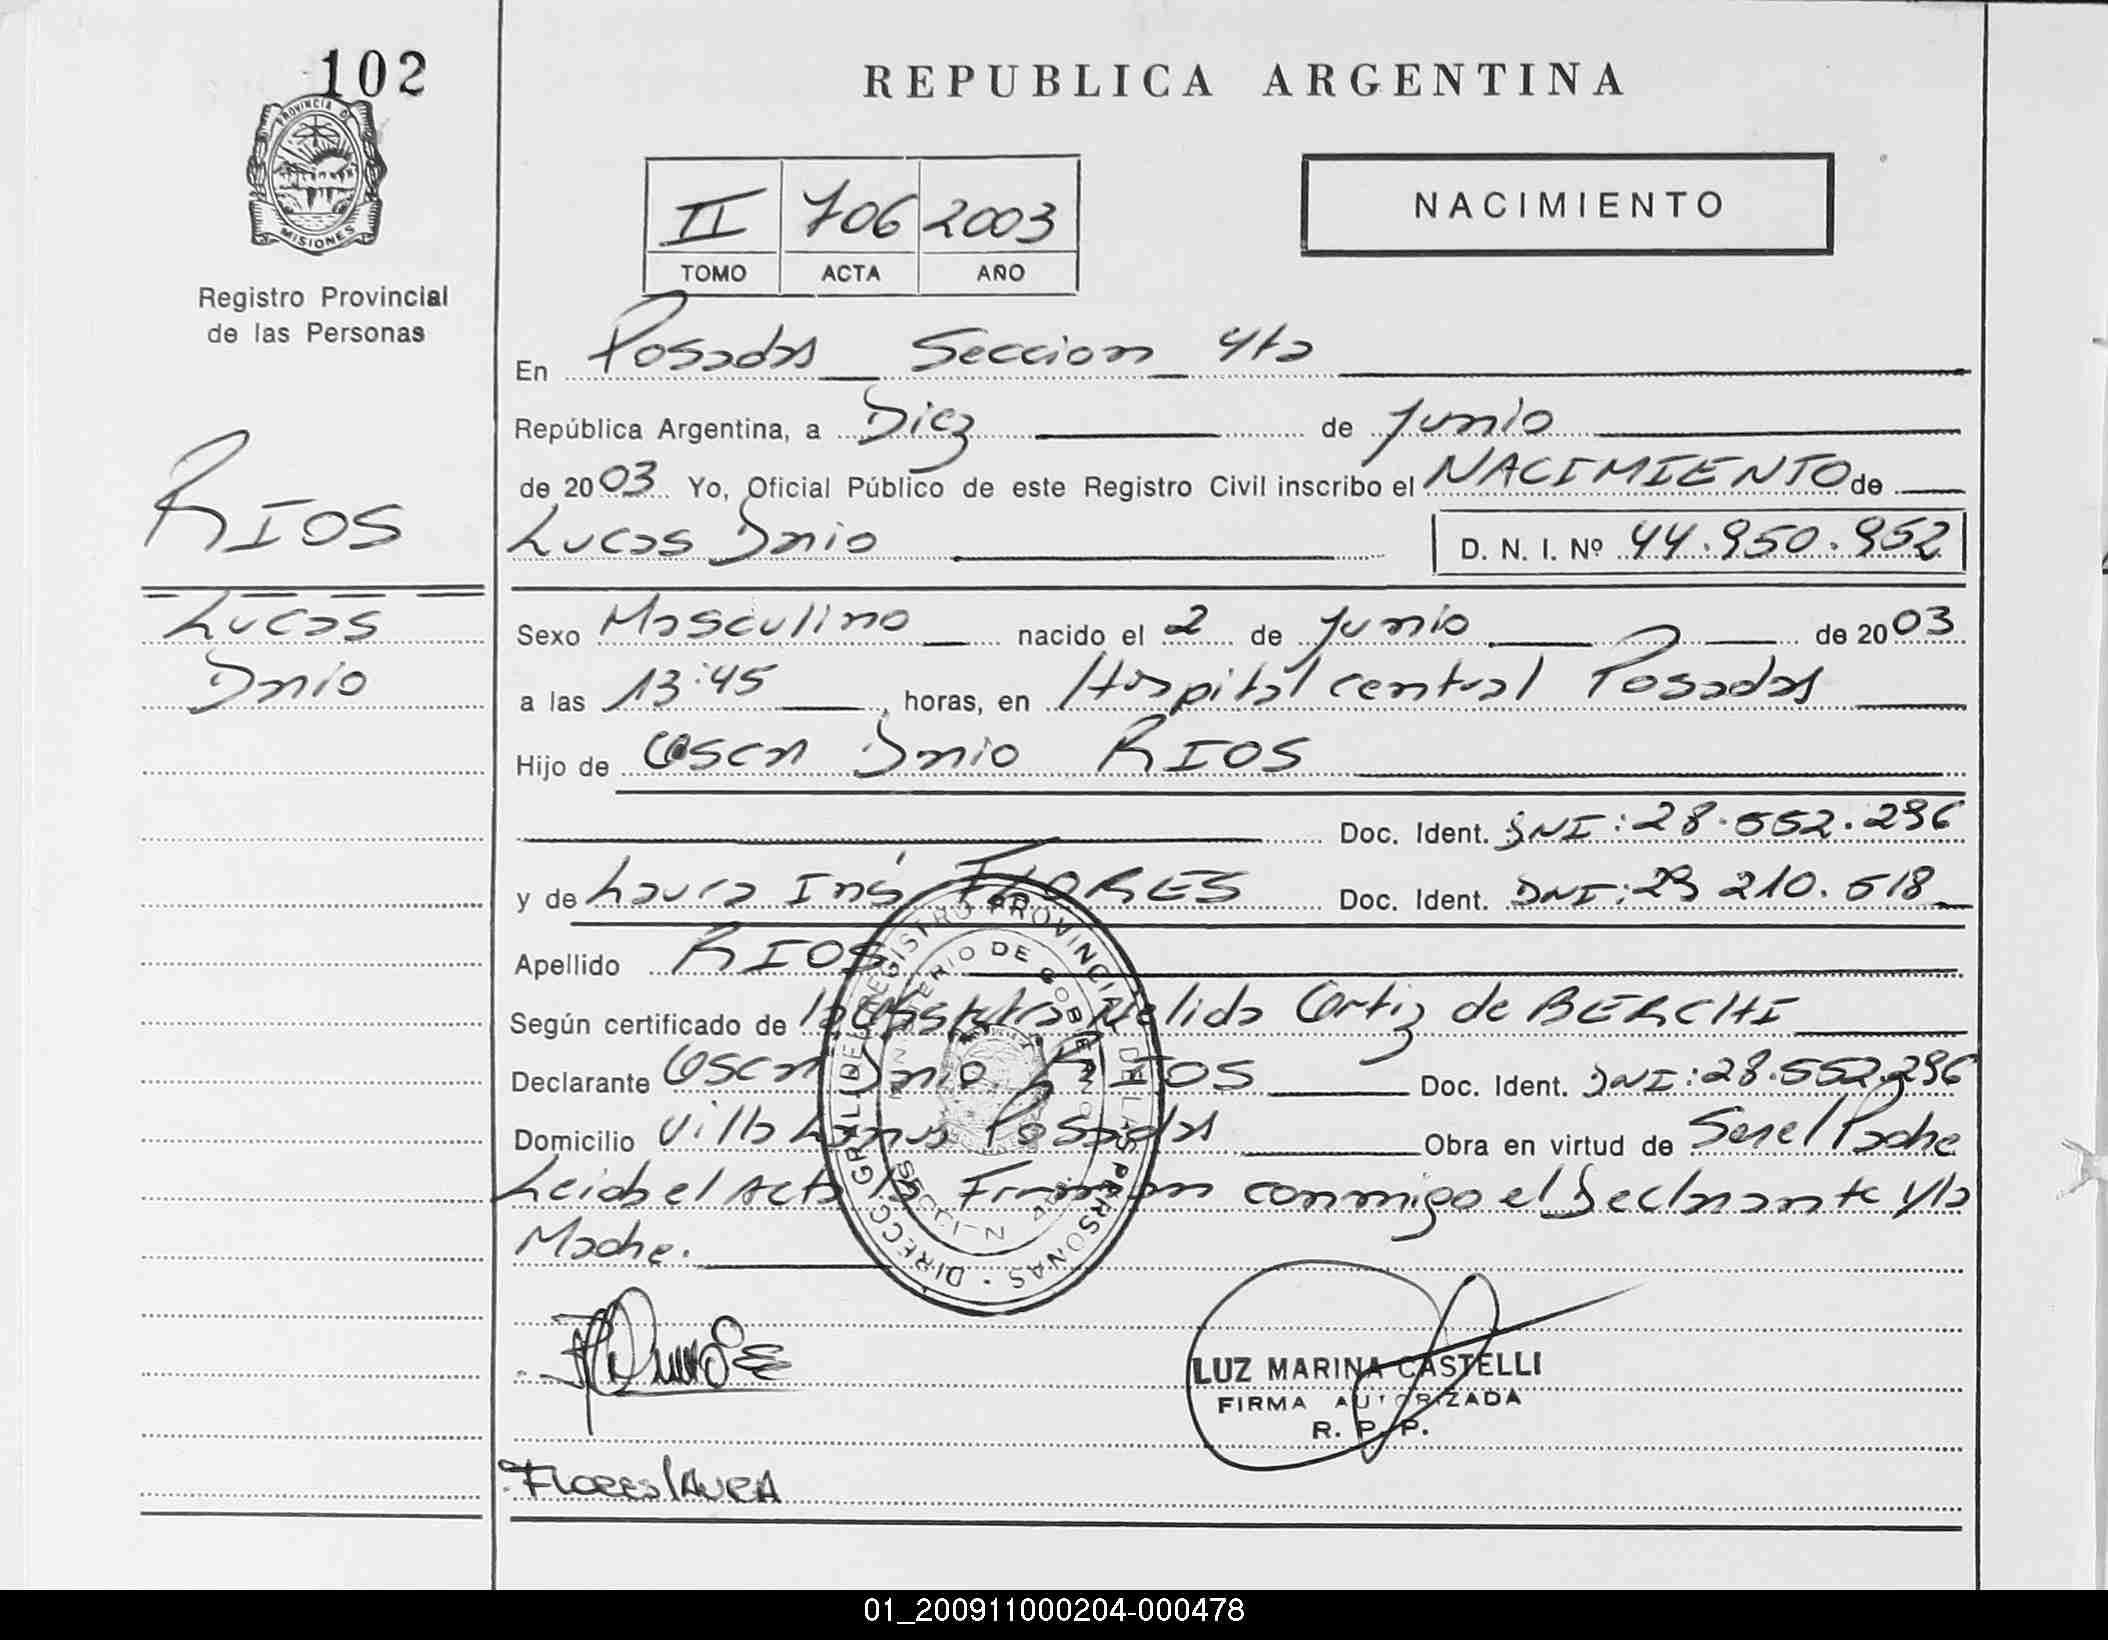 102
PROVINCIA DE
MISIONES
Registro Provincial
de las Personas
RIOS
Lucas
Dario
REPUBLICA ARGENTINA
II 706 2003
TOMO ACTA AÑO
NACIMIENTO
En Posadas Seccion 4ta
República Argentina, a Diez de Junio
de 2003 Yo, Oficial Público de este Registro Civil inscribo el NACIMIENTO de
Lucas Dario D. N. I. Nº 44.950.952
Sexo Masculino nacido el 2 de Junio de 2003
a las 13:45, horas, en Hospital central Posadas
Hijo de Oscar Dario RIOS
Doc. Ident. DNI: 28.552.296
y de Laura Inés FLORES Doc. Ident. DNI: 29 210.518
Apellido RIOS
Según certificado de la Obstetra Nelida Ortiz de BERCHI
Declarante Oscar Dario RIOS Doc. Ident. DNI: 28.552.296
Domicilio Villa Lanus Posadas Obra en virtud de Ser el Padre
Leida el Acta la Firman conmigo el Declarante y la
Madre.
DIRECC. GRAL. DE REGISTRO PROVINCIAL DE LAS PERSONAS
MINISTERIO DE GOBIERNO
LUZ MARINA CASTELLI
FIRMA AUTORIZADA
R. P. P.
FLORES LAURA
01_200911000204-000478